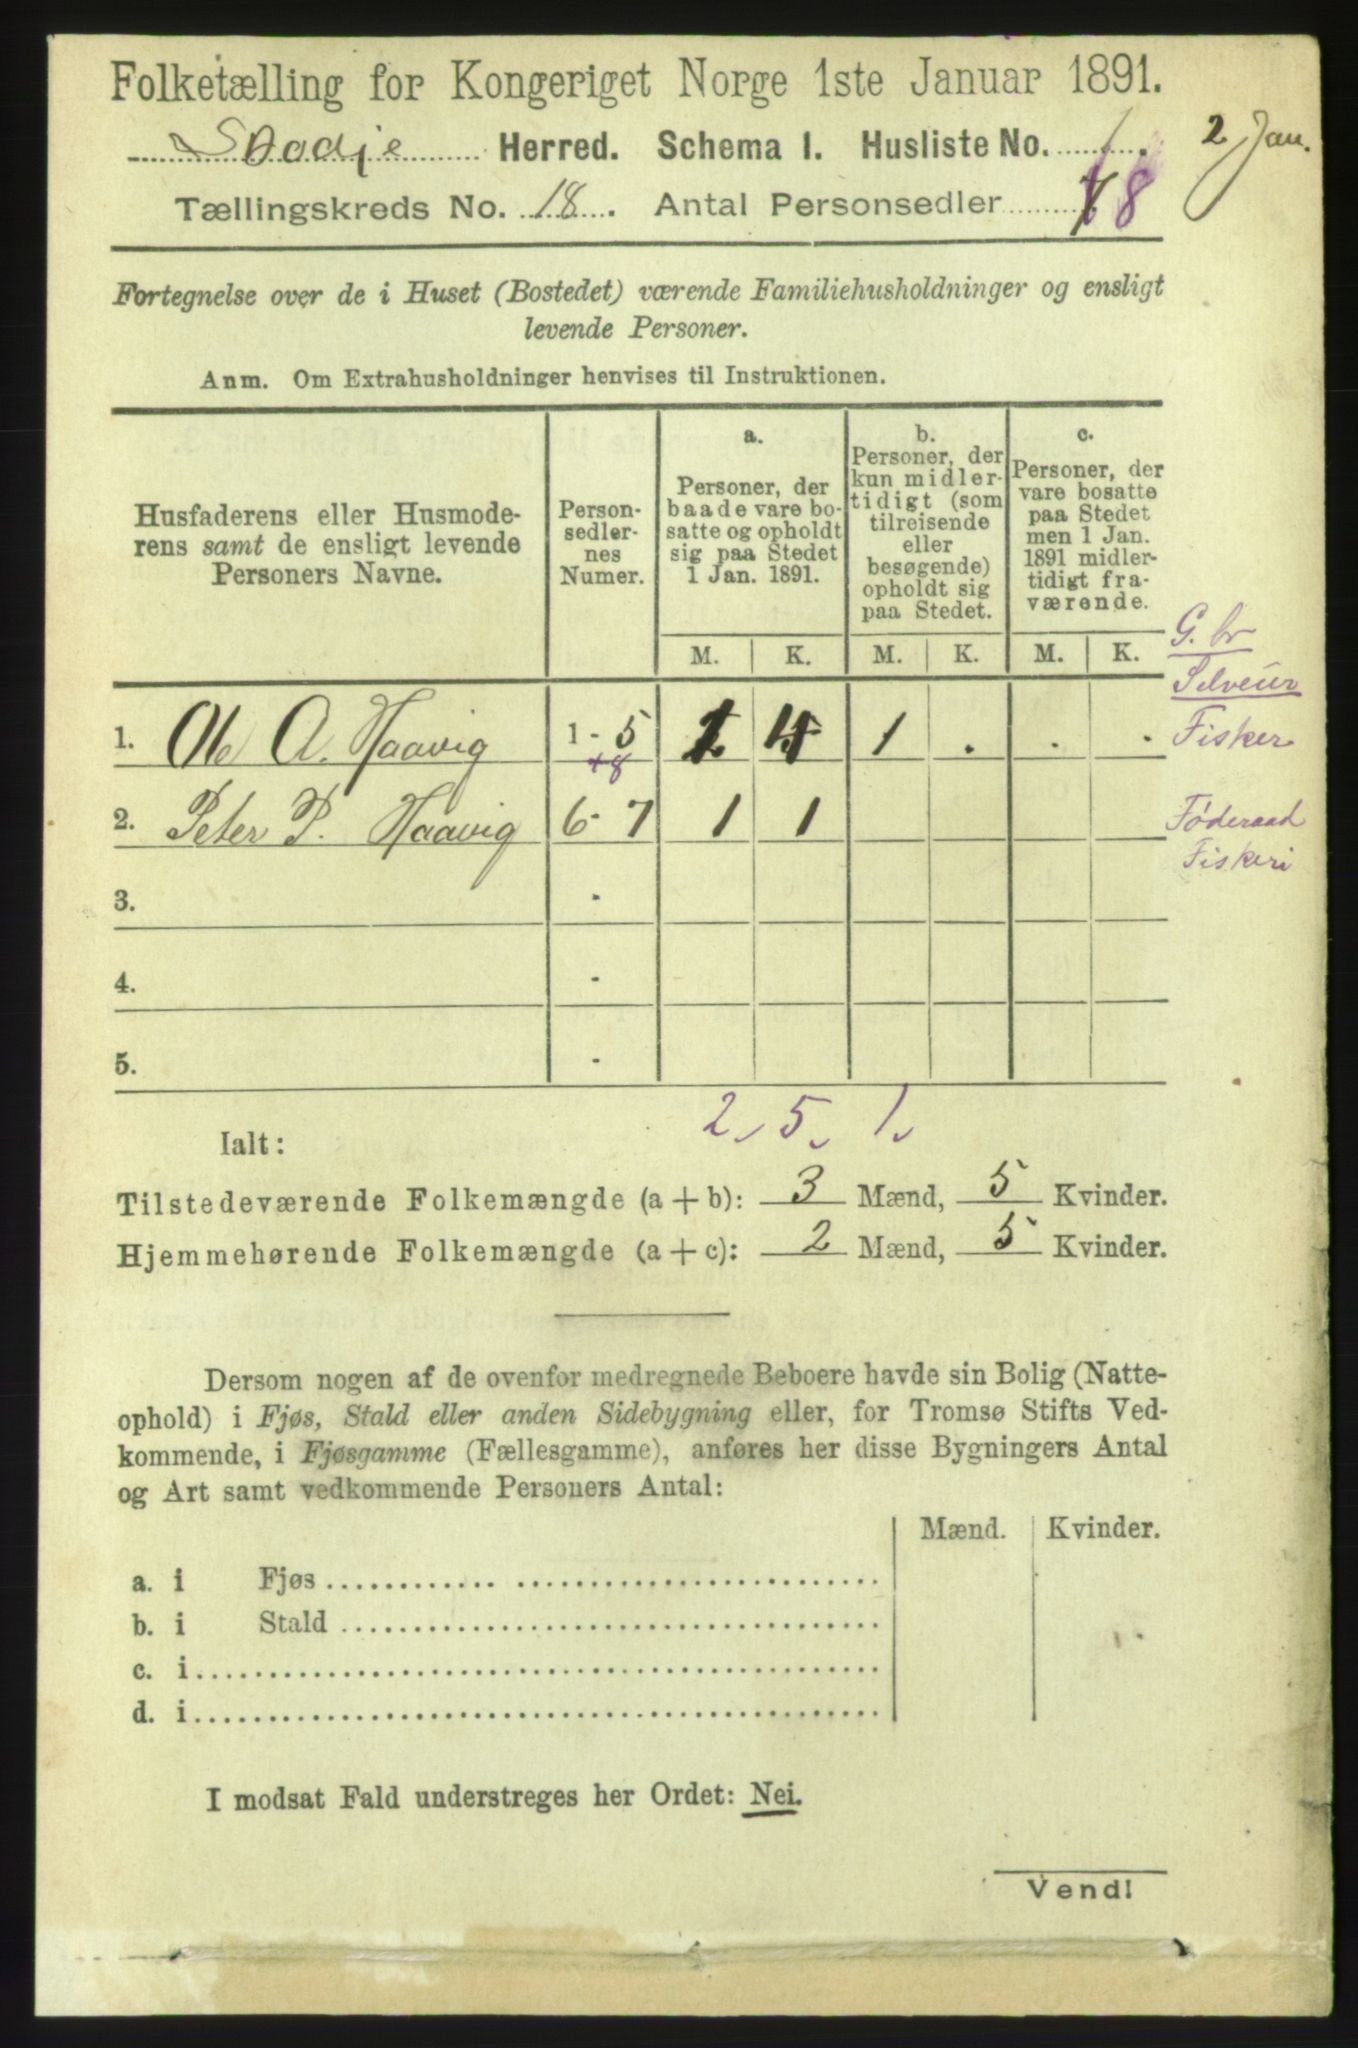 Folketælling for Kongeriget Norge 1ste Januar 1891.
Skodje Herred. Schema I. Husliste No. 1.
2 Jan.
Tællingskreds No. 18. Antal Personsedler 8
Fortegnelse over de i Huset (Bostedet) værende Familiehusholdninger og ensligt
levende Personer.
Anm. Om Extrahusholdninger henvises til Instruktionen.
Husfaderens eller Husmode-
rens samt de ensligt levende
Personers Navne.
Person-
sedler-
nes
Numer.
a.
Personer, der
baade vare bo-
satte og opholdt
sig paa Stedet
1 Jan. 1891.
b.
Personer, der
kun midler-
tidigt (som
tilreisende
eller
besøgende)
opholdt sig
paa Stedet.
c.
Personer, der
vare bosatte
paa Stedet
men 1 Jan.
1891 midler-
tidigt fra-
værende.
M. K. M. K. M. K.
G. br
Selveier
Fisker
1. Ole A. Haavig 1 - 5 1 4 1 . . .
+8
2. Peter P. Haavig 6 - 7 1 1
Føderaad
Fiskeri
3. -
4. -
5. -
2, 5, 1,
Ialt:
Tilstedeværende Folkemængde (a + b): 3 Mænd, 5 Kvinder.
Hjemmehørende Folkemængde (a + c): 2 Mænd, 5 Kvinder.
Dersom nogen af de ovenfor medregnede Beboere havde sin Bolig (Natte-
ophold) i Fjøs, Stald eller anden Sidebygning eller, for Tromsø Stifts Ved-
kommende, i Fjøsgamme (Fællesgamme), anføres her disse Bygningers Antal
og Art samt vedkommende Personers Antal:
Mænd. Kvinder.
a. i Fjøs
b. i Stald
c. i
d. i
I modsat Fald understreges her Ordet: Nei.
Vend!